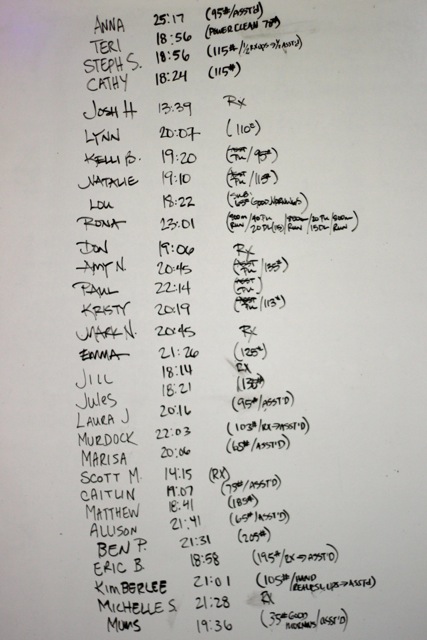 ANNA 25:17 (95#/ASST'D)
TERI 18:56 (POWER CLEAN 78#)
STEPH S. 18:56 (115#/ ASST'D)
CATHY 18:24 (115#)
JOSH H 13:39 RX
LYNN 20:07 (110#)
KELLI B. 19:20 (ASST PU/95#)
NATALIE 19:10 (ASST PU/115#)
LOU 18:22 (SUB 65# GOOD MORNINGS)
RONA 23:01 RUN RUN RUN
DON 19:06 RX
AMY N. 20:45 (ASST PU/135#)
PAUL 22:14 (ASST PU)
KRISTY 20:19 (ASST PU/113#)
MARK N. 20:45 RX
EMMA 21:26 (125#)
JILL 18:14 RX
JULES 18:21 (135#)
LAURA J 20:16 (95#/ASST'D)
MURDOCK 22:03 (103#/RX→ASST'D)
MARISA 20:06 (65#/ASST'D)
SCOTT M. 14:15 (RX)
CAITLIN 19:07 (75#/ASST'D)
MATTHEW 18:41 (185#)
ALLISON 21:41 (65#/ASST'D)
BEN P. 21:31 (205#)
ERIC B. 18:58 (195#/RX→ASST'D)
KIMBERLEE 21:01 (105#/HAND RELEASE UPS→ASST'D)
MICHELLE S. 21:28 RX
MUMS 19:36 (35# GOOD MORNINGS/ASST'D)